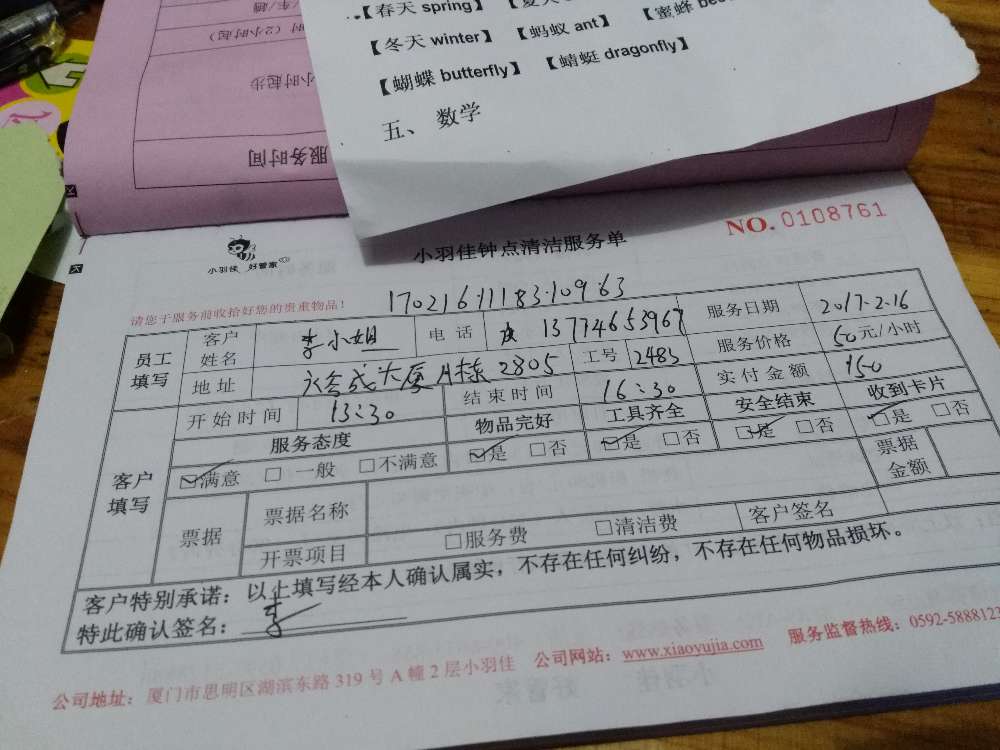 【春天 spring】
【冬天 winter】 【蚂蚁 ant】 【蜜蜂
【蝴蝶 butterfly】 【蜻蜓 dragonfly】
五、 数学
服务时间
小时起步
时（2小时起）
小羽佳 好管家
小羽佳钟点清洁服务单
NO. 0108761
请您于服务前收拾好您的贵重物品！
17021611183·109·63
员工填写 客户姓名 李小姐 电话 13774653967 服务日期 2017.2.16
地址 大厦A栋2805 工号 2483 服务价格 50元/小时
开始时间 13:30 结束时间 16:30 实付金额 150
客户填写 服务态度 物品完好 工具齐全 安全结束 收到卡片
☑满意 □一般 □不满意 ☑是 □否 ☑是 □否 ☑是 □否 ☑是 □否
票据 票据名称 票据金额
开票项目 □服务费 □清洁费 客户签名
客户特别承诺：以上填写经本人确认属实，不存在任何纠纷，不存在任何物品损坏。
特此确认签名：李
公司地址：厦门市思明区湖滨东路 319 号 A 幢 2 层小羽佳 公司网站：www.xiaoyujia.com 服务监督热线：0592-5888123